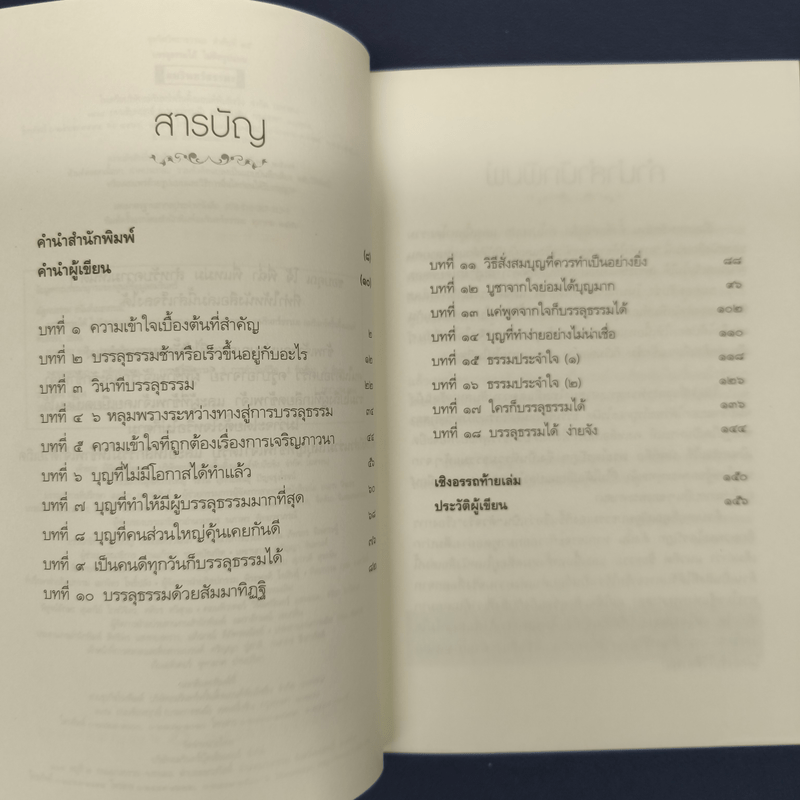 สารบัญ
คำนำสำนักพิมพ์ (๘)
คำนำผู้เขียน (๑๐)
บทที่ ๑ ความเข้าใจเบื้องต้นที่สำคัญ ๒
บทที่ ๒ บรรลุธรรมช้าหรือเร็วขึ้นอยู่กับอะไร ๑๒
บทที่ ๓ วินาทีบรรลุธรรม ๒๒
บทที่ ๔ ๖ หลุมพรางระหว่างทางสู่การบรรลุธรรม
บทที่ ๕ ความเข้าใจที่ถูกต้องเรื่องการเจริญภาวนา
บทที่ ๖ บุญที่ไม่มีโอกาสได้ทำแล้ว
บทที่ ๗ บุญที่ทำให้มีผู้บรรลุธรรมมากที่สุด ๖๐
บทที่ ๘ บุญที่คนส่วนใหญ่คุ้นเคยกันดี ๖๘
บทที่ ๙ เป็นคนดีทุกวันก็บรรลุธรรมได้ ๗๖
บทที่ ๑๐ บรรลุธรรมด้วยสัมมาทิฏฐิ
บทที่ ๑๑ วิธีสั่งสมบุญที่ควรทำเป็นอย่างยิ่ง ๘๘
บทที่ ๑๒ บูชาจากใจย่อมได้บุญมาก ๙๖
บทที่ ๑๓ แค่พูดจากใจก็บรรลุธรรมได้ ๑๐๒
บทที่ ๑๔ บุญที่ทำง่ายอย่างไม่น่าเชื่อ ๑๑๐
บทที่ ๑๕ ธรรมประจำใจ (๑) ๑๑๘
บทที่ ๑๖ ธรรมประจำใจ (๒) ๑๒๖
บทที่ ๑๗ ใครก็บรรลุธรรมได้ ๑๓๖
บทที่ ๑๘ บรรลุธรรมได้ ง่ายจัง ๑๔๔
เชิงอรรถท้ายเล่ม ๑๕๐
ประวัติผู้เขียน ๑๕๖